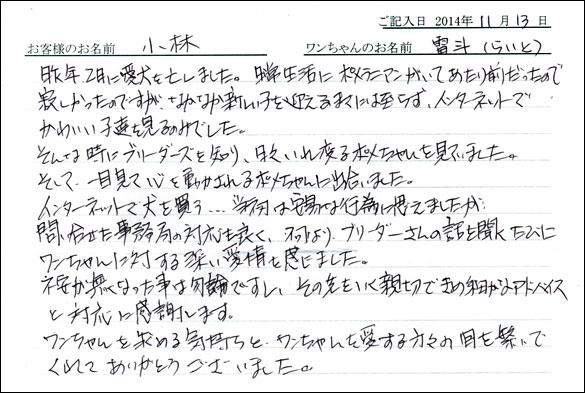 ご記入日 2014年 11月 13日
お客様のお名前 小林 ワンちゃんのお名前 雷斗(らいと)
昨年2月に愛犬を亡しました。日常生活にポメラニアンがいてあたり前だったので
寂しかったのですが、なかなか新しい子を迎えるまでには至らず、インターネットで
かわいい子達を見るのみでした。
そんな時にブリーダーズを知り、日々いれ変るポメちゃんを見ていました。
そして、一目見て心を動かされるポメちゃんに出会いました。
インターネットで犬を買う…当初は安易な行為に思えましたが
問い合せた事務局の対応も良く、何より、ブリーダーさんの話を聞くたびに
ワンちゃんに対する深い愛情を感じました。
不安が無くなった事は勿論ですし、その先をいく親切できめ細かなアドバイス
と対応に感謝します。
ワンちゃんを求める気持ちと、ワンちゃんを愛する方々の目を繋いで
くれてありがとうございました。